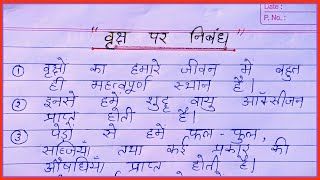 Date :
P. No. :
"वृक्ष पर निबंध"
① वृक्षों का हमारे जीवन में बहुत
ही महत्वपूर्ण स्थान है।
② इनसे हमें शुद्ध वायु ऑक्सीजन
प्राप्त होती है।
③ पेड़ो से हमें फल-फुल,
सब्जियाँ तथा कई प्रकार की
औषधियाँ प्राप्त होती है।